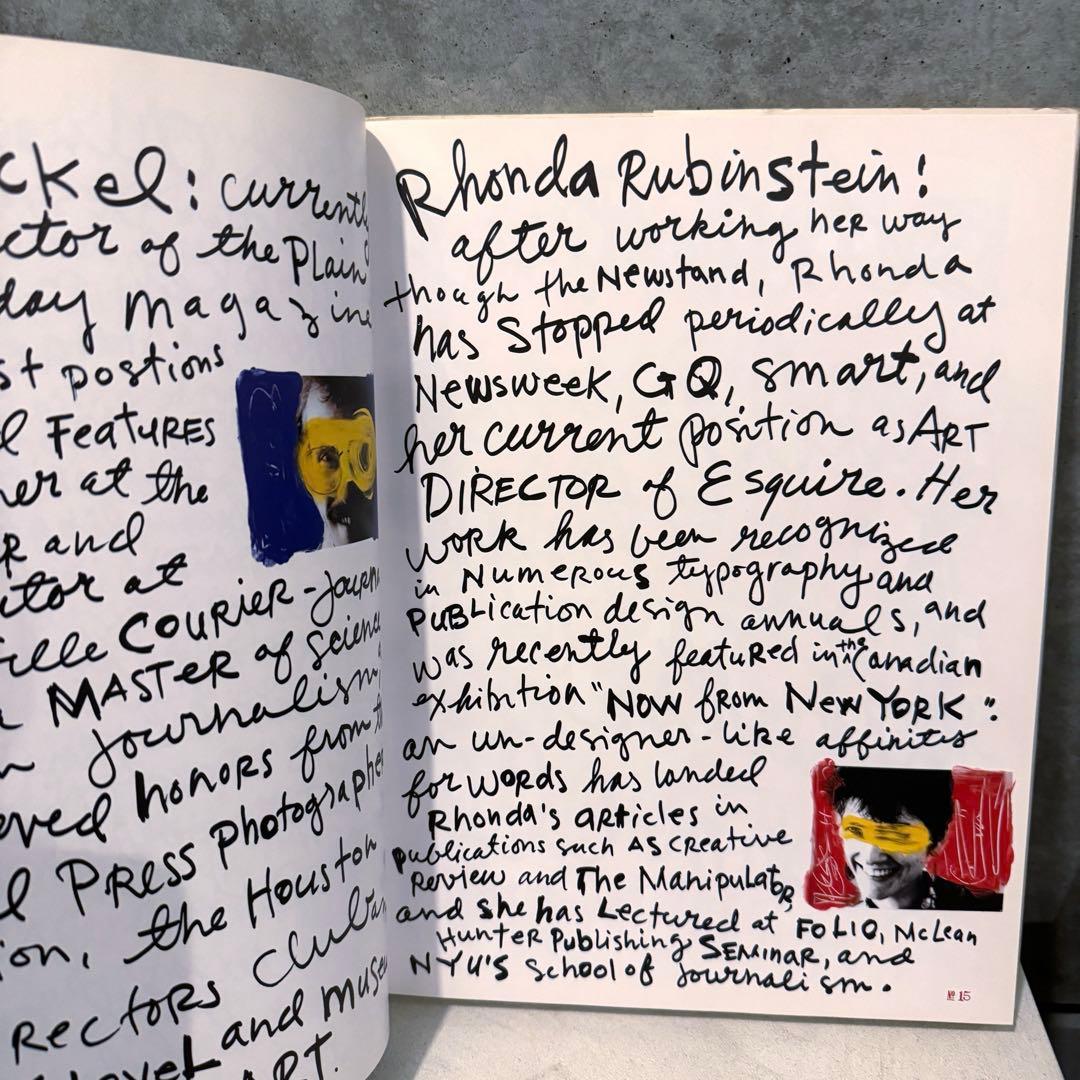 ckel: currently
ctor of the Plain
day magazine
st postions
l FEATURES
her at the
R and
itor at
ille COURIER-Journ
MASTER of Science
n journalism,
eved honors from th
l PRESS photographe
ion, the Houston
RECTORS Club
LoveL and muse
ART.
Rhonda Rubinstein!
after working her way
though the Newstand, Rhonda
has stopped periodically at
Newsweek, GQ, smart, and
her current position as ART
DIRECTOR of Esquire. Her
work has been recognized
in Numerous typography and
PUBLication design annuals, and
was recently featured in the Canadian
exhibition "NOW from New YORK".
an un-designer-like affinity
for words has landed
Rhonda's articles in
publications such AS CReative
Review and The Manipulator,
and she has Lectured at FOLIO, McLean
Hunter Publishing SEMINAR, and
NYU'S School of Journalism.
№ 15